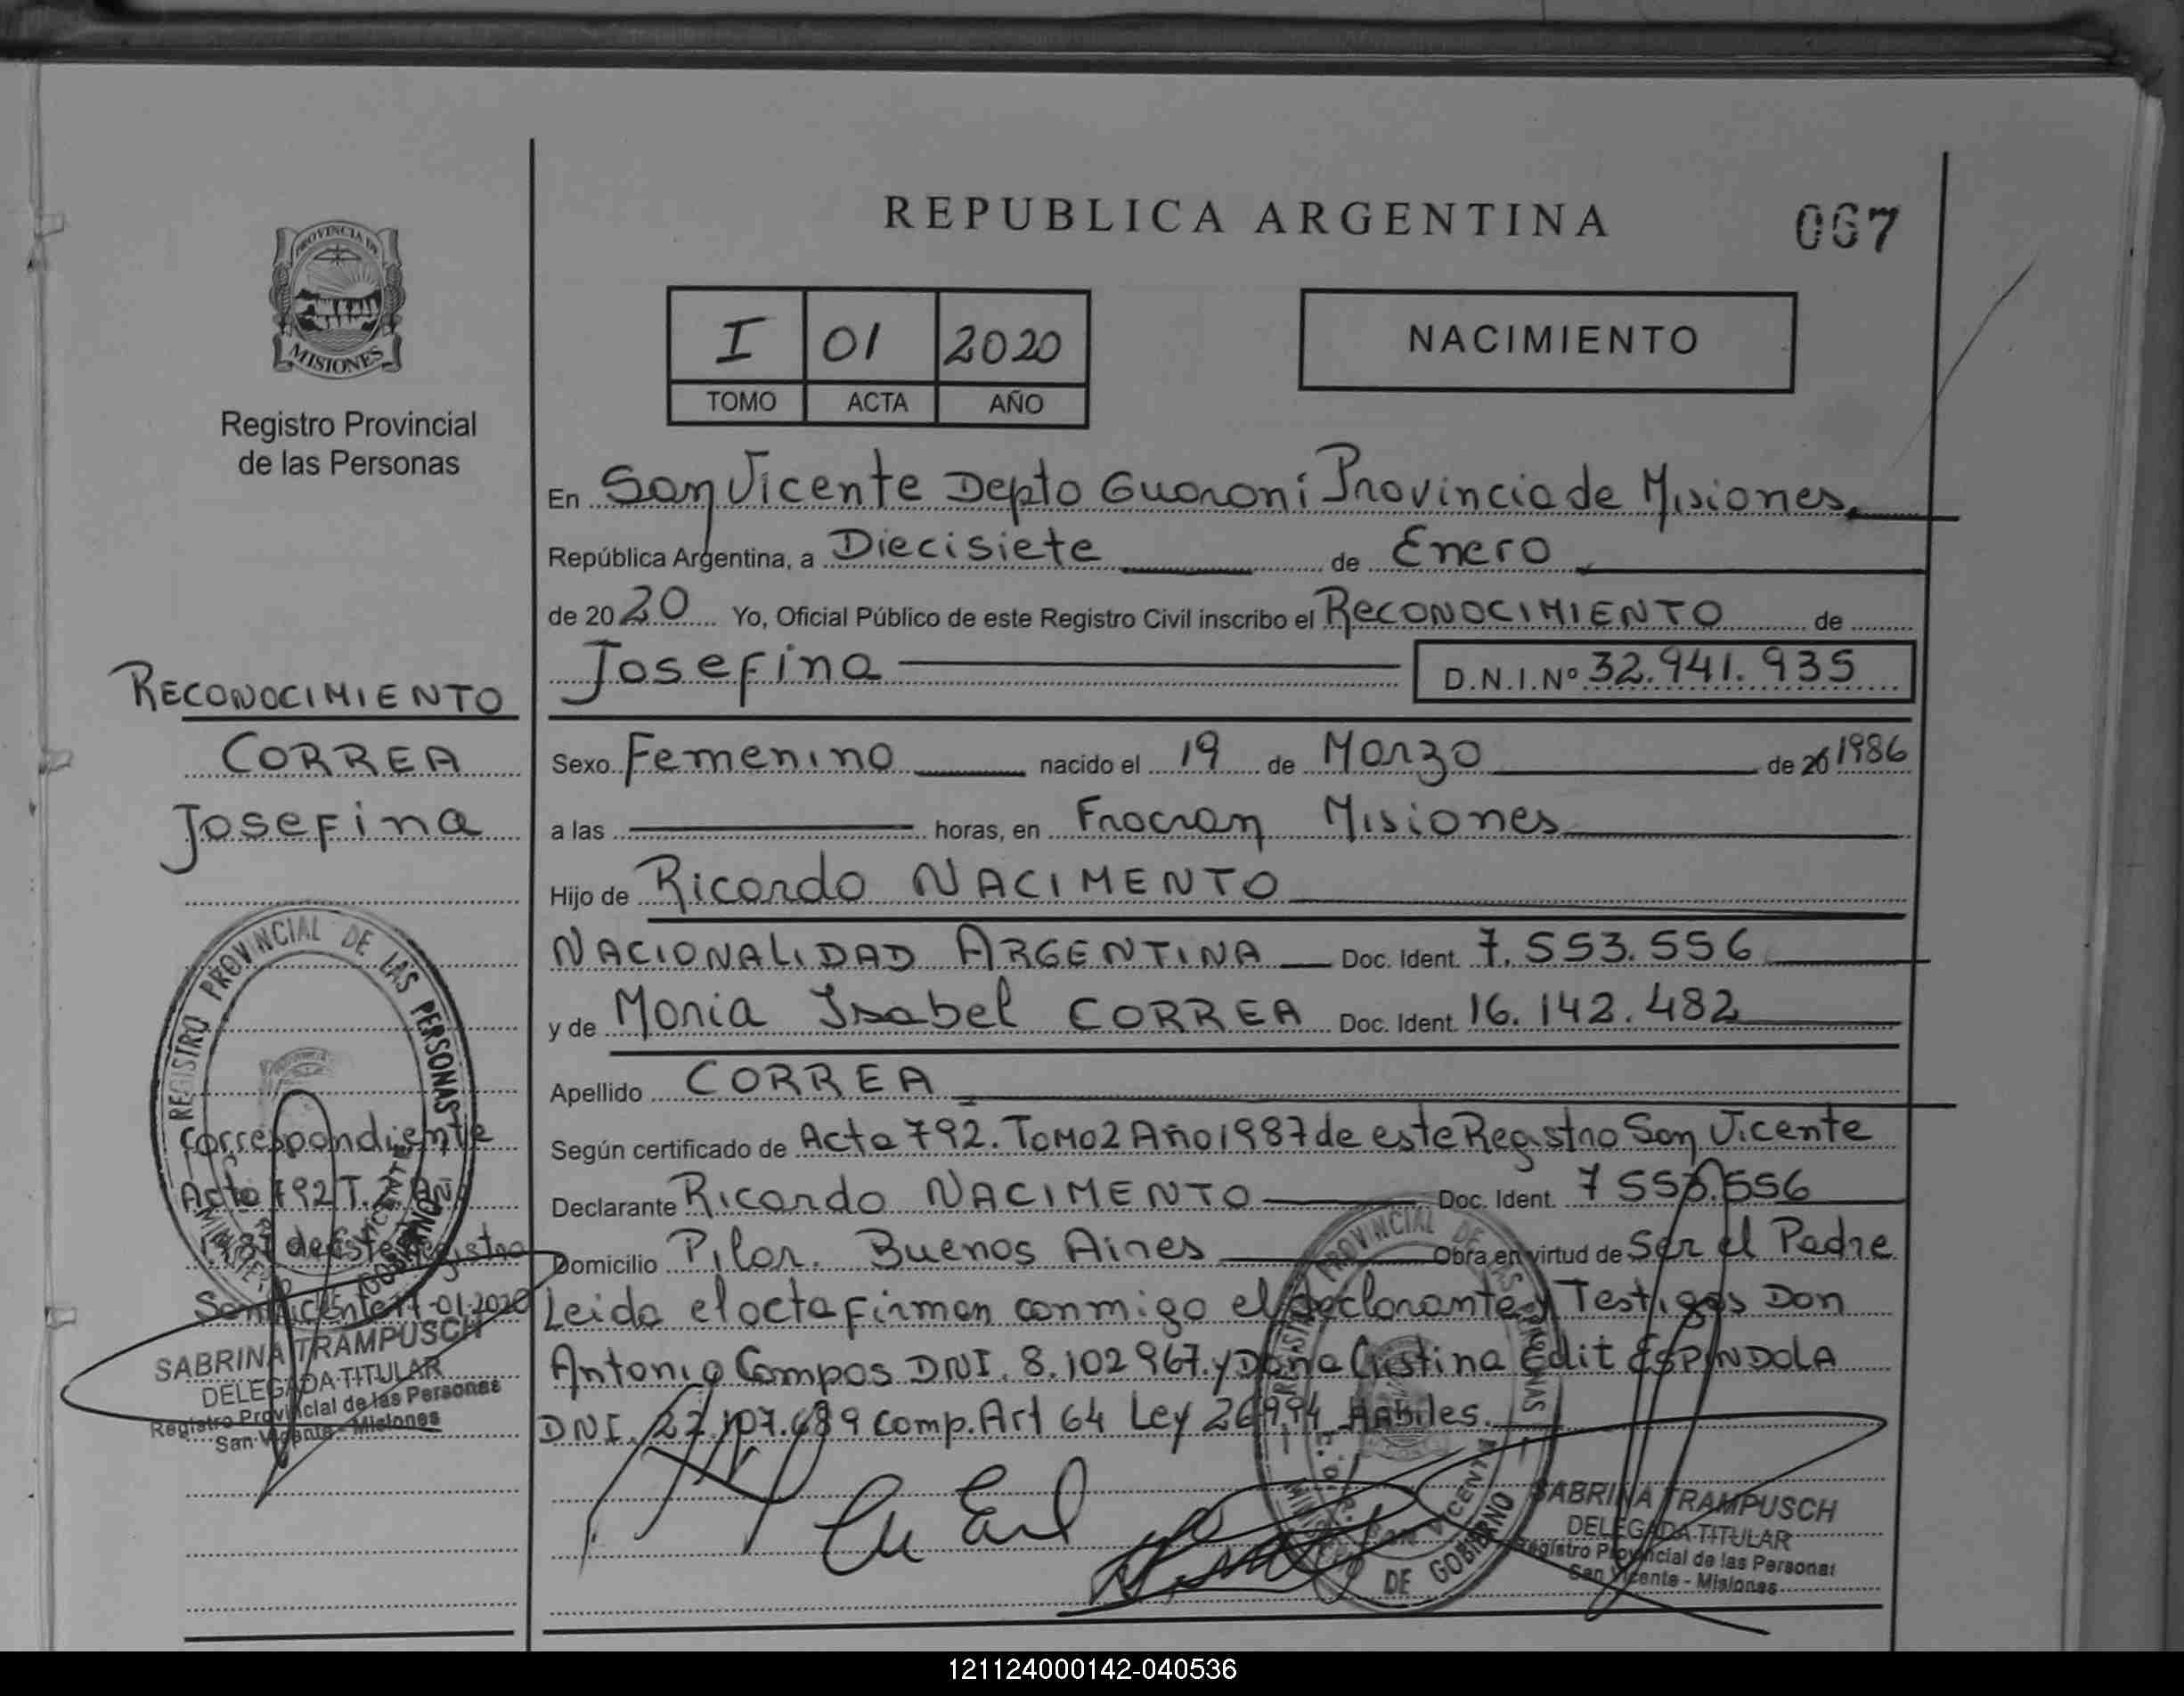 REPUBLICA ARGENTINA
067
PROVINCIA DE
MISIONES
Registro Provincial
de las Personas
I 01 2020
TOMO ACTA AÑO
NACIMIENTO
En San Vicente Depto Guaraní Provincia de Misiones
República Argentina, a Diecisiete de Enero
de 2020 Yo, Oficial Público de este Registro Civil inscribo el RECONOCIMIENTO de
Josefina D.N.I.Nº 32.941.935
Sexo Femenino nacido el 19 de Marzo de 20 1986
a las horas, en Fracran Misiones
Hijo de Ricardo NACIMENTO
NACIONALIDAD ARGENTINA Doc. Ident. 7.553.556
y de Maria Isabel CORREA Doc. Ident. 16.142.482
Apellido CORREA
Según certificado de Acta 792. Tomo 2 Año 1987 de este Registro San Vicente
Declarante Ricardo NACIMENTO Doc. Ident. 7 553.556
Domicilio Pilar. Buenos Aires Obra en virtud de Ser el Padre
Leida el acta firman conmigo el declarante y Testigos Don
Antonio Campos DNI. 8.102967. y Doña Cristina Edit ESPINDOLA
DNI. 22.107.689 Comp. Art 64 Ley 26994 Habiles.
RECONOCIMIENTO
CORREA
Josefina
REGISTRO PROVINCIAL DE LAS PERSONAS
Correspondiente
Acta 792 T. 2
1987 de este Registro
San Vicente 17-01-2020
SABRINA TRAMPUSCH
DELEGADA TITULAR
Registro Provincial de las Personas
San Vicente - Misiones
SABRINA TRAMPUSCH
DELEGADA TITULAR
Registro Provincial de las Personas
San Vicente - Misiones
DE GOBIERNO
121124000142-040536